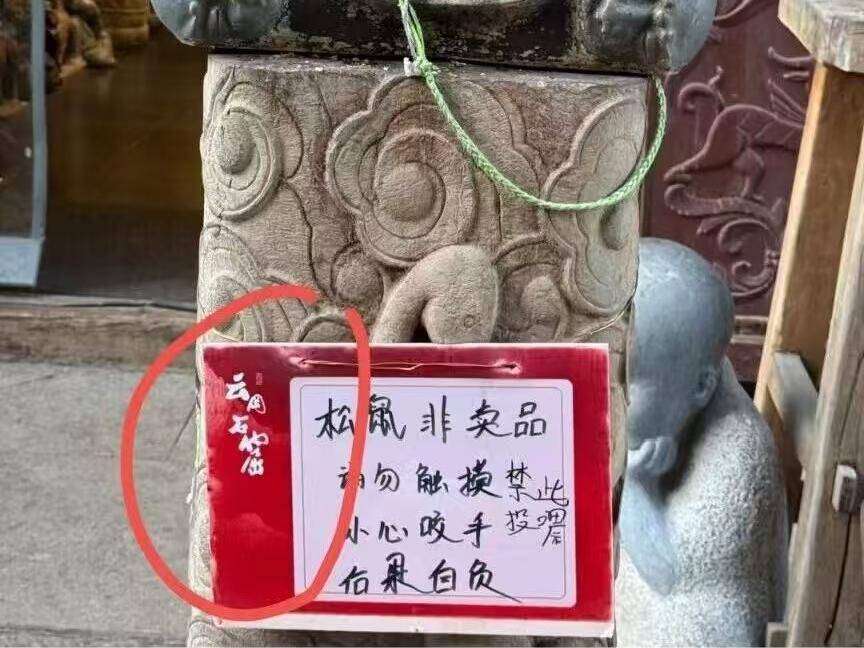 云冈石窟
松鼠非卖品
请勿触摸
小心咬手
后果自负
禁止
投喂